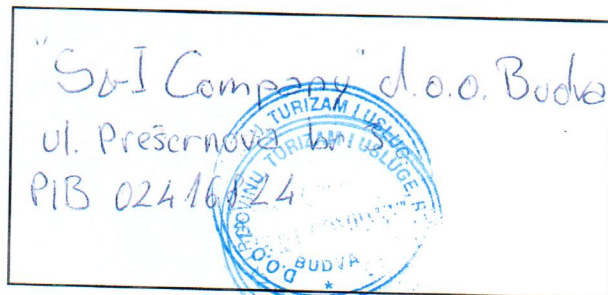 "S&I Company" d.o.o. Budva
ul. Prešernova br
PIB 02416124
TURIZAM I USLUGE
D.O.O. TRGOVINU, TURIZAM I USLUGE,
BUDVA
*